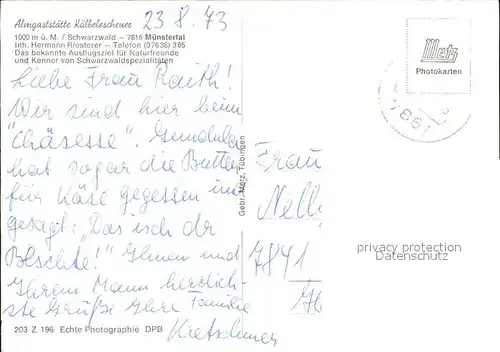 Almgaststätte Kälbelescheuer
23.8.73
1000 m ü. M. / Schwarzwald – 7816 Münstertal
Inh. Hermann Riesterer – Telefon (07636) 305
Das bekannte Ausflugsziel für Naturfreunde
und Kenner von Schwarzwaldspezialitäten
Metz
Photokarten
Liebe Frau Rauth!
Wir sind hier beim
"Chäsesse".
hat sogar die Butter
für Käse gegessen und
gesagt: "Das isch dr
Beschte!" Ihnen und
Ihrem Mann herzlich-
ste Grüße Ihre Familie
Kretschmer
Gebr. Metz, Tübingen
Frau
Nell
7841
privacy protection
Datenschutz
203 Z 196 Echte Photographie DPB